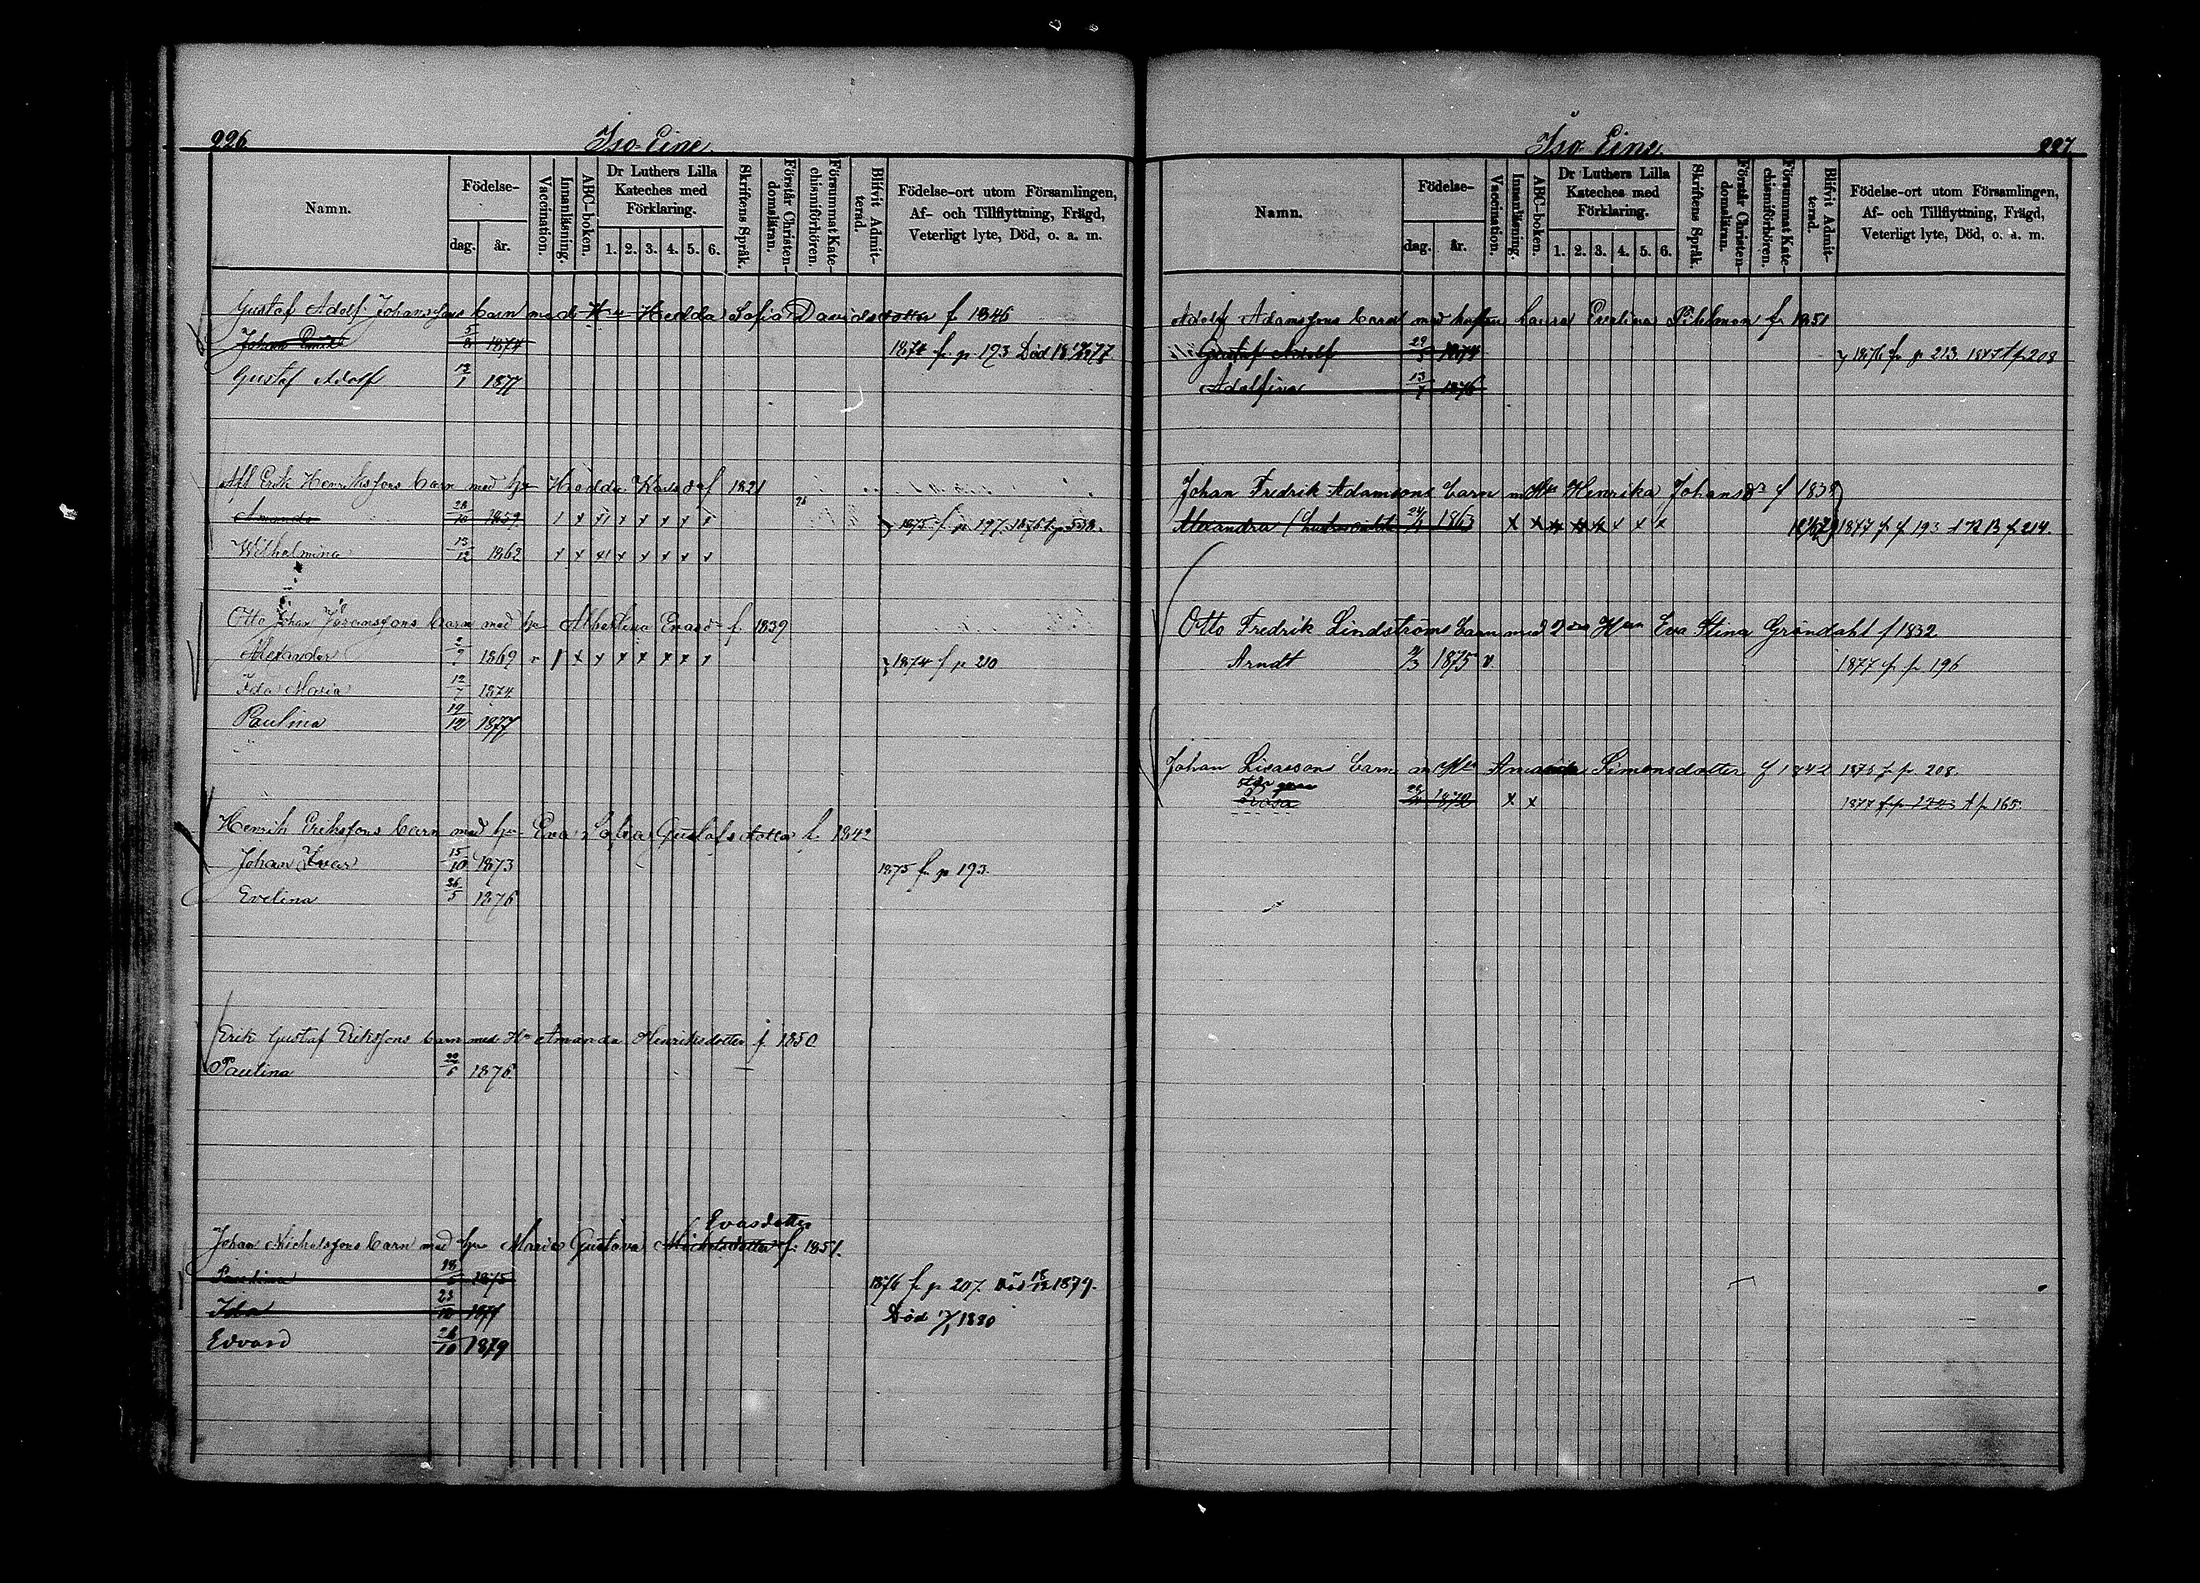 226
Iso-Eine.
Namn.
Födelse-
dag.
år.
Vaccination.
Innanläsning.
ABC-boken.
Dr Luthers Lilla Kateches med Förklaring.
1. 2. 3. 4. 5. 6.
Skriftens Språk.
Förstår Christendomsläran.
Försummat Katechismiförhören.
Blifvit Admitterad.
Födelse-ort utom Församlingen, Af- och Tillflyttning, Frägd, Veterligt lyte, Död, o. a. m.
Gustaf Adolf Johanssons barn med Hu Hedda Sofia Davidsdotter f 1846
Johan Emil 5/8 1874 1874 f. p 193 Död
Gustaf Adolf 13/1 1877
Erik Henrikssons barn med hu Hedda Karlsd f 1821
Amanda 28/10 1859 1875 f p 197.
Wilhelmina 13/12 1862
Otto Johan Göranssons barn med hu Albertina Enasd f. 1839
Alexander 2/9 1869 1874 f p 210
Ida Maria 12/7 1874
Paulina 19/12 1877
Henrik Erikssons barn med hu Eva Sofia Gustafsdotter f. 1842
Johan Ivar 15/10 1873 1875 f p 193.
Evelina 26/5 1876
Erik Gustaf Erikssons barn med Hu Amanda Henriksdotter f 1850
Paulina 22/6 1876
Evasdotter
Johan Michelssons barn med hu Maria Gustava Michelsdotter f. 1851.
Paulina 1875 1876 f p 207. Död 18/12 1879.
Ida 23/10 1877 Död 1880
Edvard 26/10 1879
227
Iso Eine.
Namn.
Födelse-
dag.
år.
Vaccination.
Innanläsning.
ABC-boken.
Dr Luthers Lilla Kateches med Förklaring.
1. 2. 3. 4. 5. 6.
Skriftens Språk.
Förstår Christendomsläran.
Försummat Katechismiförhören.
Blifvit Admitterad.
Födelse-ort utom Församlingen, Af- och Tillflyttning, Frägd, Veterligt lyte, Död, o. a. m.
Adolf Adamssons barn med hustru Laura Evelina Pihlman f. 1851
Gustaf Adolf 29/5 1874 1876 f. p 213. 1877 t p 208
Adolfina 13/7 1876
Johan Fredrik Adamsons barn m Hu Henrika Johansdr f 1838
Alexandra 1863 1877 f. p 193
Otto Fredrik Lindströms barn med 2dra Hun Eva Stina Gröndahl f 1832
Arndt 1875 1877 f. p 196
Johan Lisassons barn m Hu Amanda Simonsdotter f 1842 1875 f. p 208.
Rosa 1872 1877 t p 165.